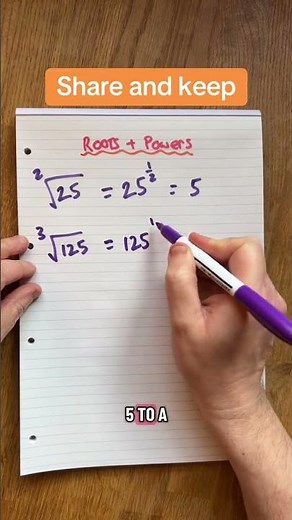 Share and keep
Roots + Powers
²√25 = 25^½ = 5
³√125 = 125^1
5 TO A